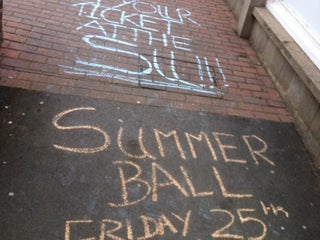 YOUR
TICKET
AT THE
SU!!
SUMMER
BALL
FRIDAY 25TH